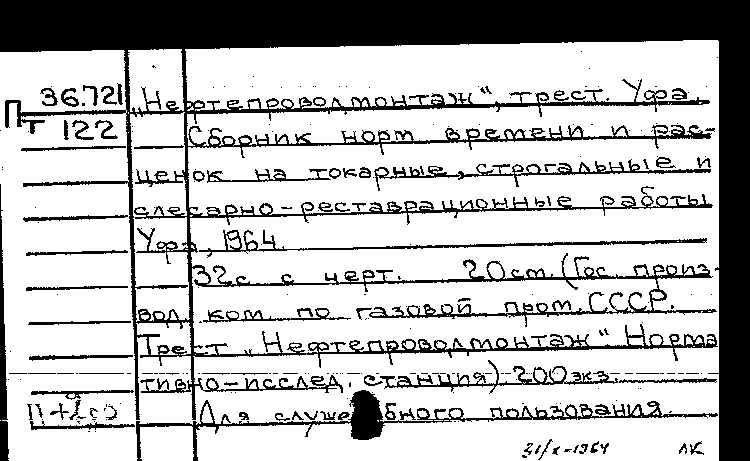 П 36.721 „Нефтепроводмонтаж“, трест. Уфа.
т 122 Сборник норм времени и рас-
ценок на токарные, строгальные и
слесарно-реставрационные работы
Уфа, 1964.
32с. с черт. 20см. (Гос. произ-
вод. ком. по газовой пром. СССР.
Трест „Нефтепроводмонтаж“. Норма
тивно-исслед. станция). 200экз.
Для служебного пользования.
31/X-1964 ЛК